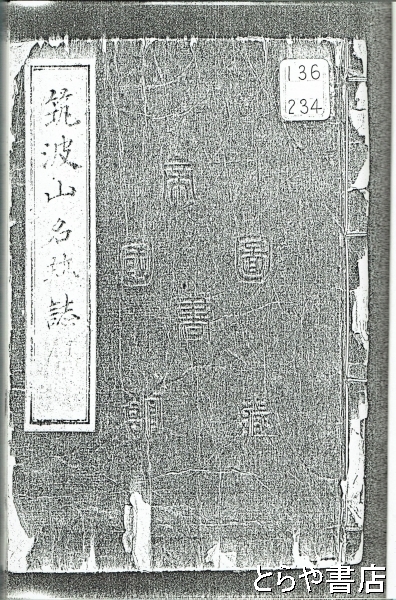 筑波山名跡誌
136
234
帝
國
圖
書
館
藏
とらや書店